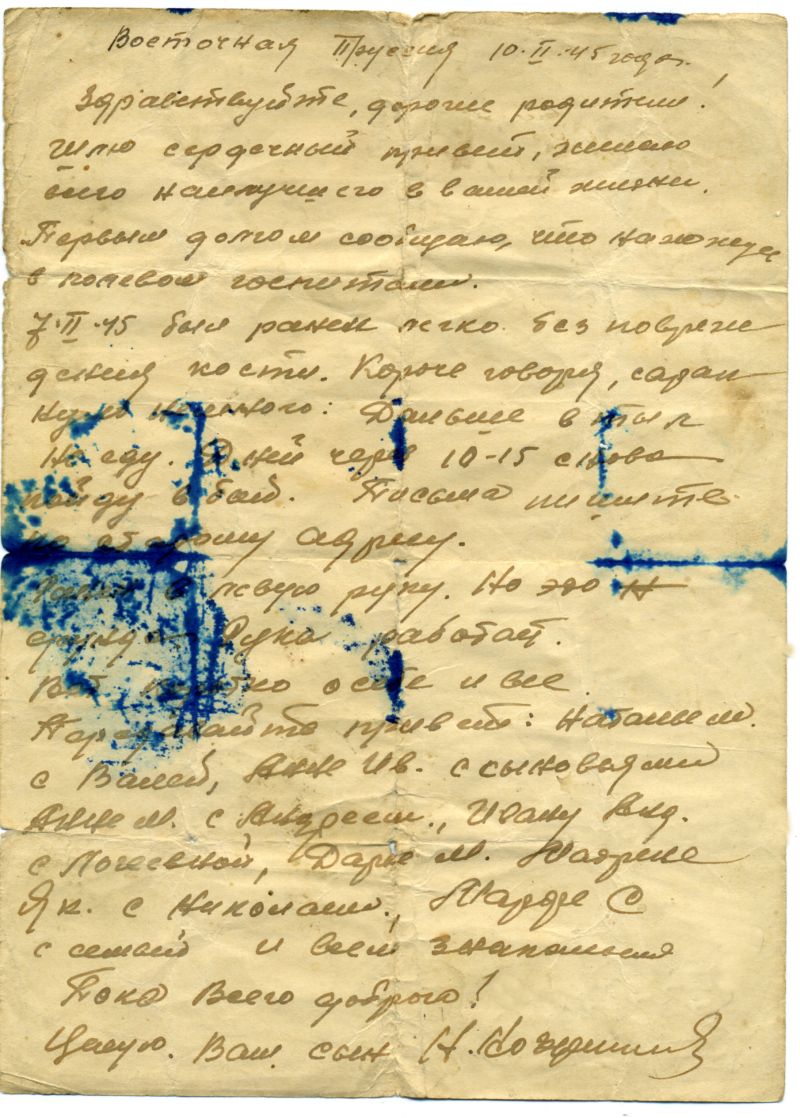 Восточная Пруссия 10·II·45 года.
Здравствуйте, дорогие родители!
Шлю сердечный привет, желаю
всего наилучшего в вашей жизни.
Первым долгом сообщаю, что нахожусь
в полевом госпитале.
7·II·45 был ранен легко без повреж
дения кости. Короче говоря, царап
нуло немного. Дальше в тыл
не еду. Дней через 10-15 снова
пойду в бой. Письма пишите
по старому адресу.
Ранен в левую руку. Но это
ерунда Рука работает.
Вот коротко о себе и все
Передавайте привет: Наталье М.
с Валей, Анне Ив. с сыновьями
Анне М. с Андреем, Ивану Анд.
с, Дарье М. Матрене
Як. с Николаем, Марфе С
с семьей и всем знакомым
Пока Всего доброго!
Целую. Ваш сын Н.